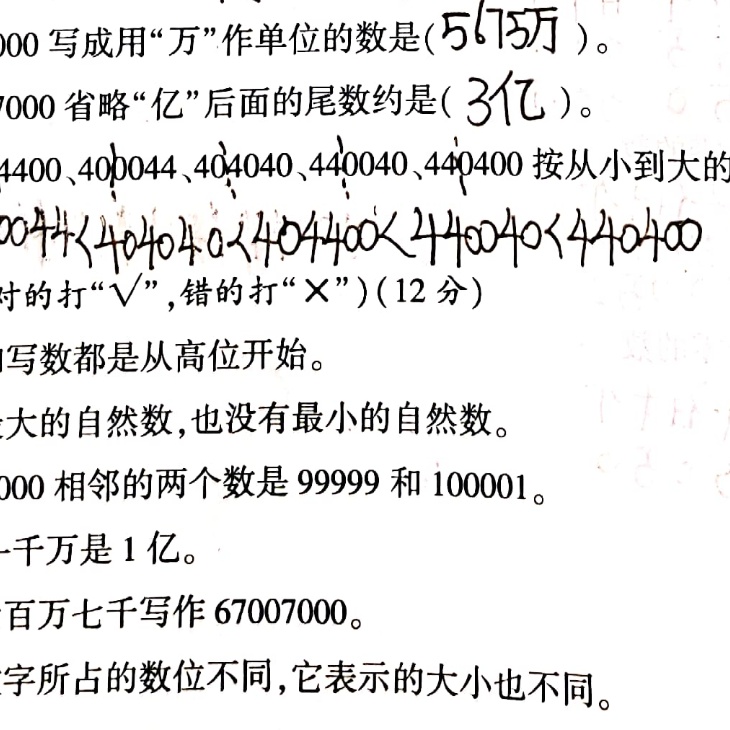 000 写成用“万”作单位的数是(5675万)。
7000 省略“亿”后面的尾数约是(3亿)。
4400、400044、404040、440040、440400 按从小到大的
0044<404040<404400<440040<440400
对的打“√”,错的打“×”)(12 分)
写数都是从高位开始。
大的自然数,也没有最小的自然数。
000 相邻的两个数是 99999 和 100001。
千万是 1 亿。
百万七千写作 67007000。
字所占的数位不同,它表示的大小也不同。